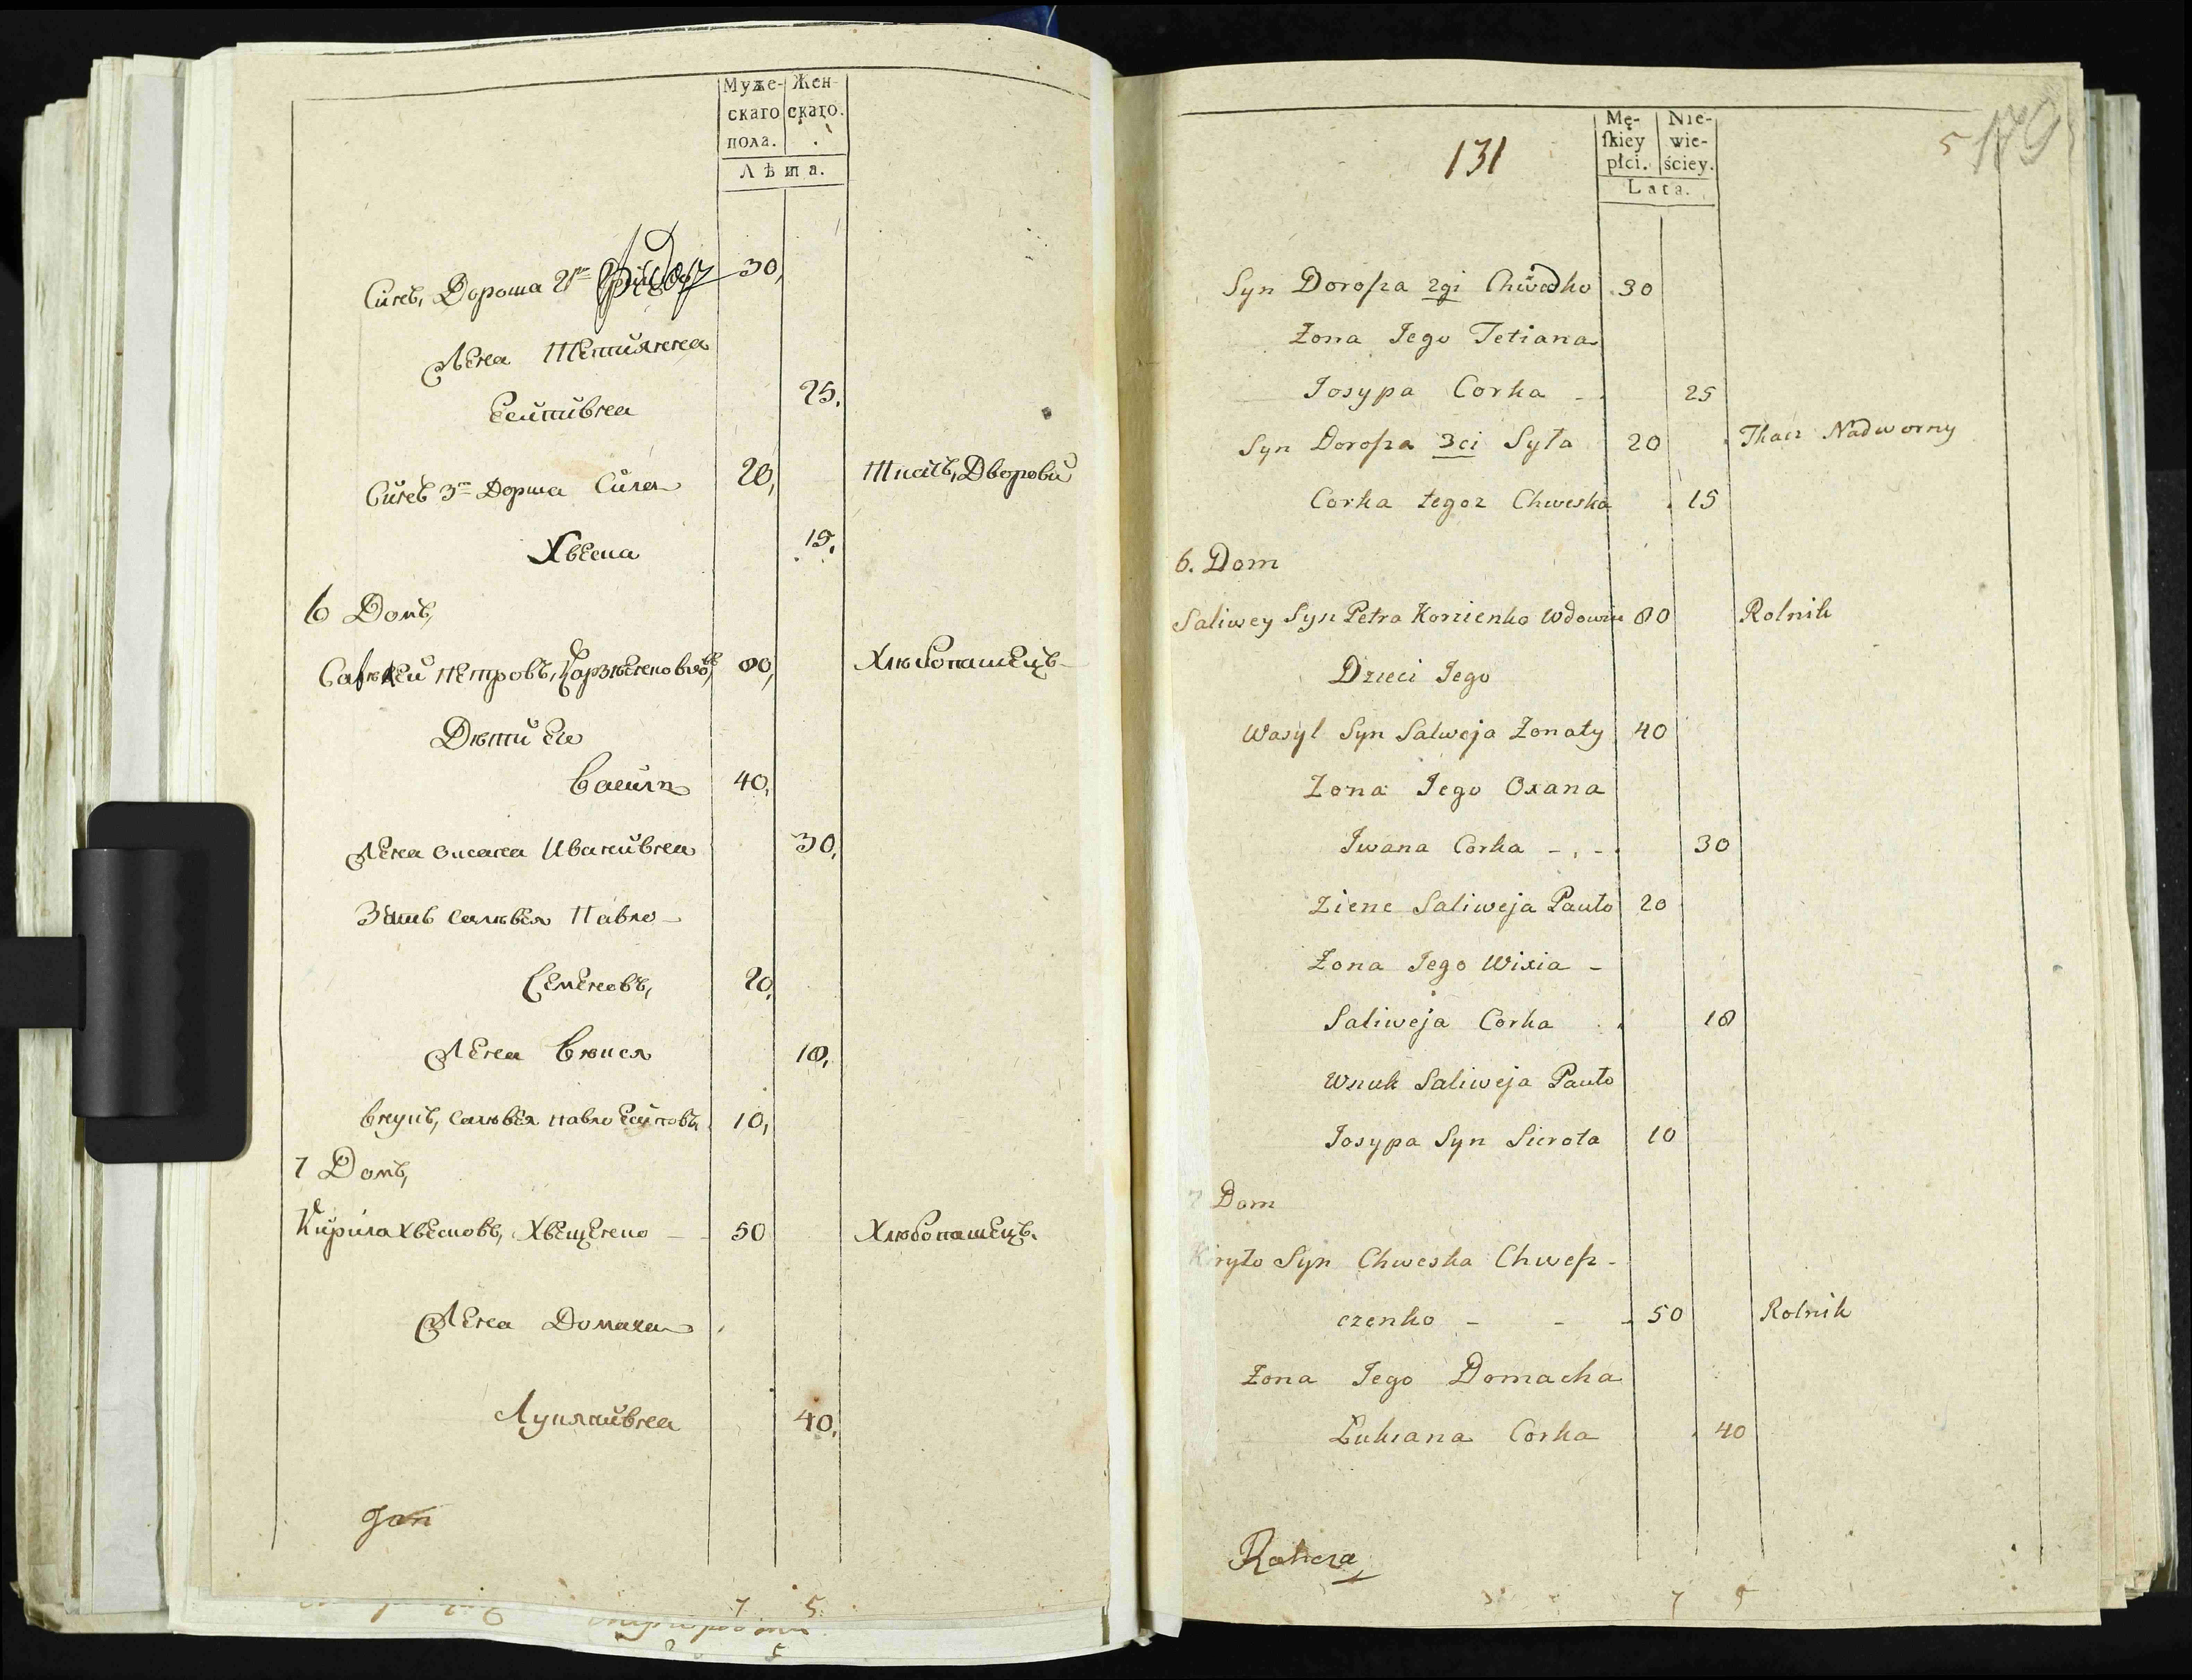 Муже- Жен-
скаго скаго.
пола.
Лѣта.
Сынъ Дороша 2й 30,
Жена Тетиянна
Еситивна 25,
Сынъ 3й Дорша Сила 20, Ткачъ Дворови
Хвеска 15,
6 Домъ,
Петровъ, 80, Хлѣбопашецъ
Дѣти Ею
Васили 40,
Жена Оксана Иванивна 30,
Зать Саливея Павло
Семеновъ, 20,
Жена Викся 18,
Внукъ, Саливея Павло Есиповъ 10,
7 Домъ,
Кирила Хвесковъ, Хвещенко 50 Хлѣбопашецъ
Жена Домаха
Лукянивна 40,
Jan
7 5
131
Mę- Nie-
ſkiey wie-
płci. ściey.
Lata.
5 179
Syn Doroſza 2gi Chwedko 30
Żona Jego Tetiana
Josypa Corka 25
Syn Doroſza 3ci Syła 20 Tkacz Nadworny
Corka tegoz Chweska 15
6. Dom
Saliwey Syn Petra Korzienko Wdowiec 80 Rolnik
Dzieci Jego
Wasyl Syn Salweja Żonaty 40
Żona Jego Oxana
Iwana Corka 30
Ziene Saliweja Pauło 20
Żona Jego Wixia
Saliweja Corka 18
Wnuk Saliweja Pauło
Josypa Syn Sierota 10
7 Dom
Kiryło Syn Chweska Chweſz-
czenko 50 Rolnik
Żona Jego Domacha
Łukiana Corka 40
7 5